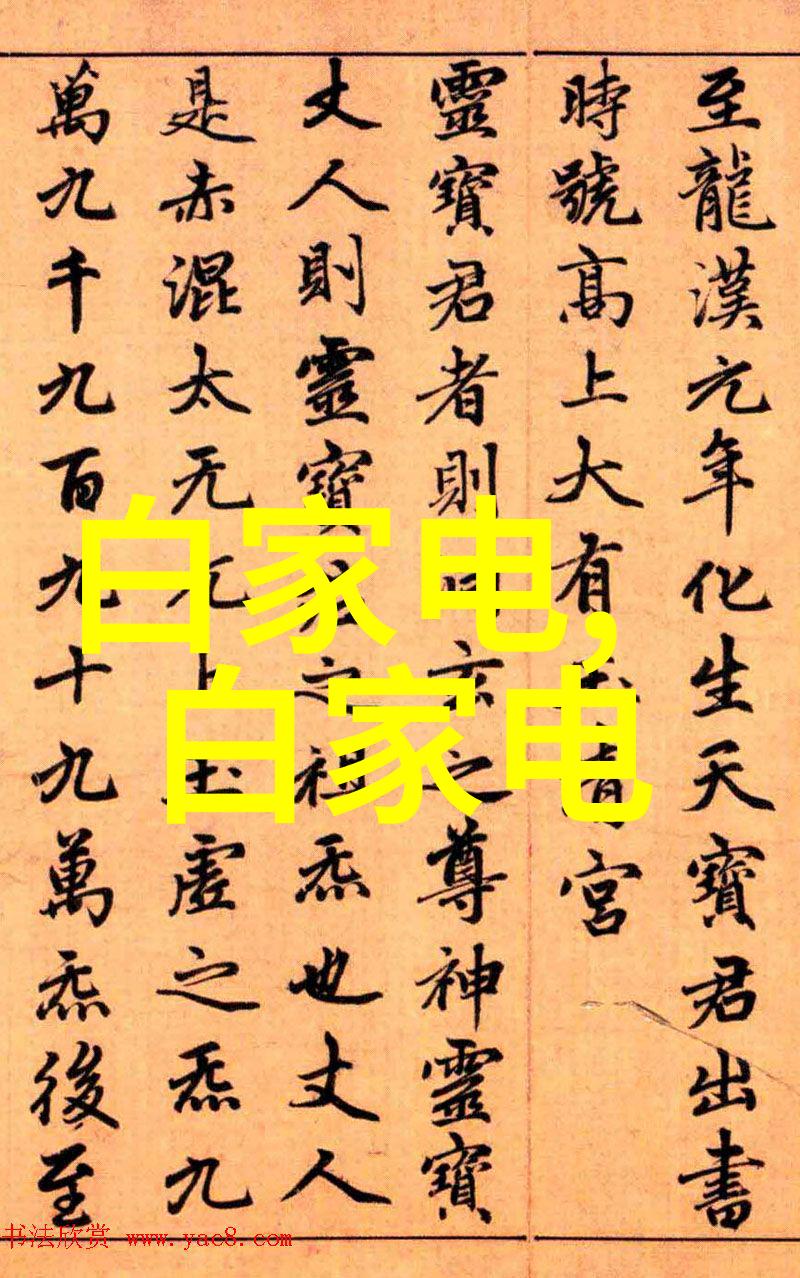 至龍漢元年化生天寶君出書
時號高上大有宮
靈寶君者則之尊神靈寶
丈人則靈寶之祖炁也丈人
是赤混太无元上玉虛之炁九
萬九千九百九十九萬炁後至
白家电,
白家电
书法欣赏 www.yac8.com